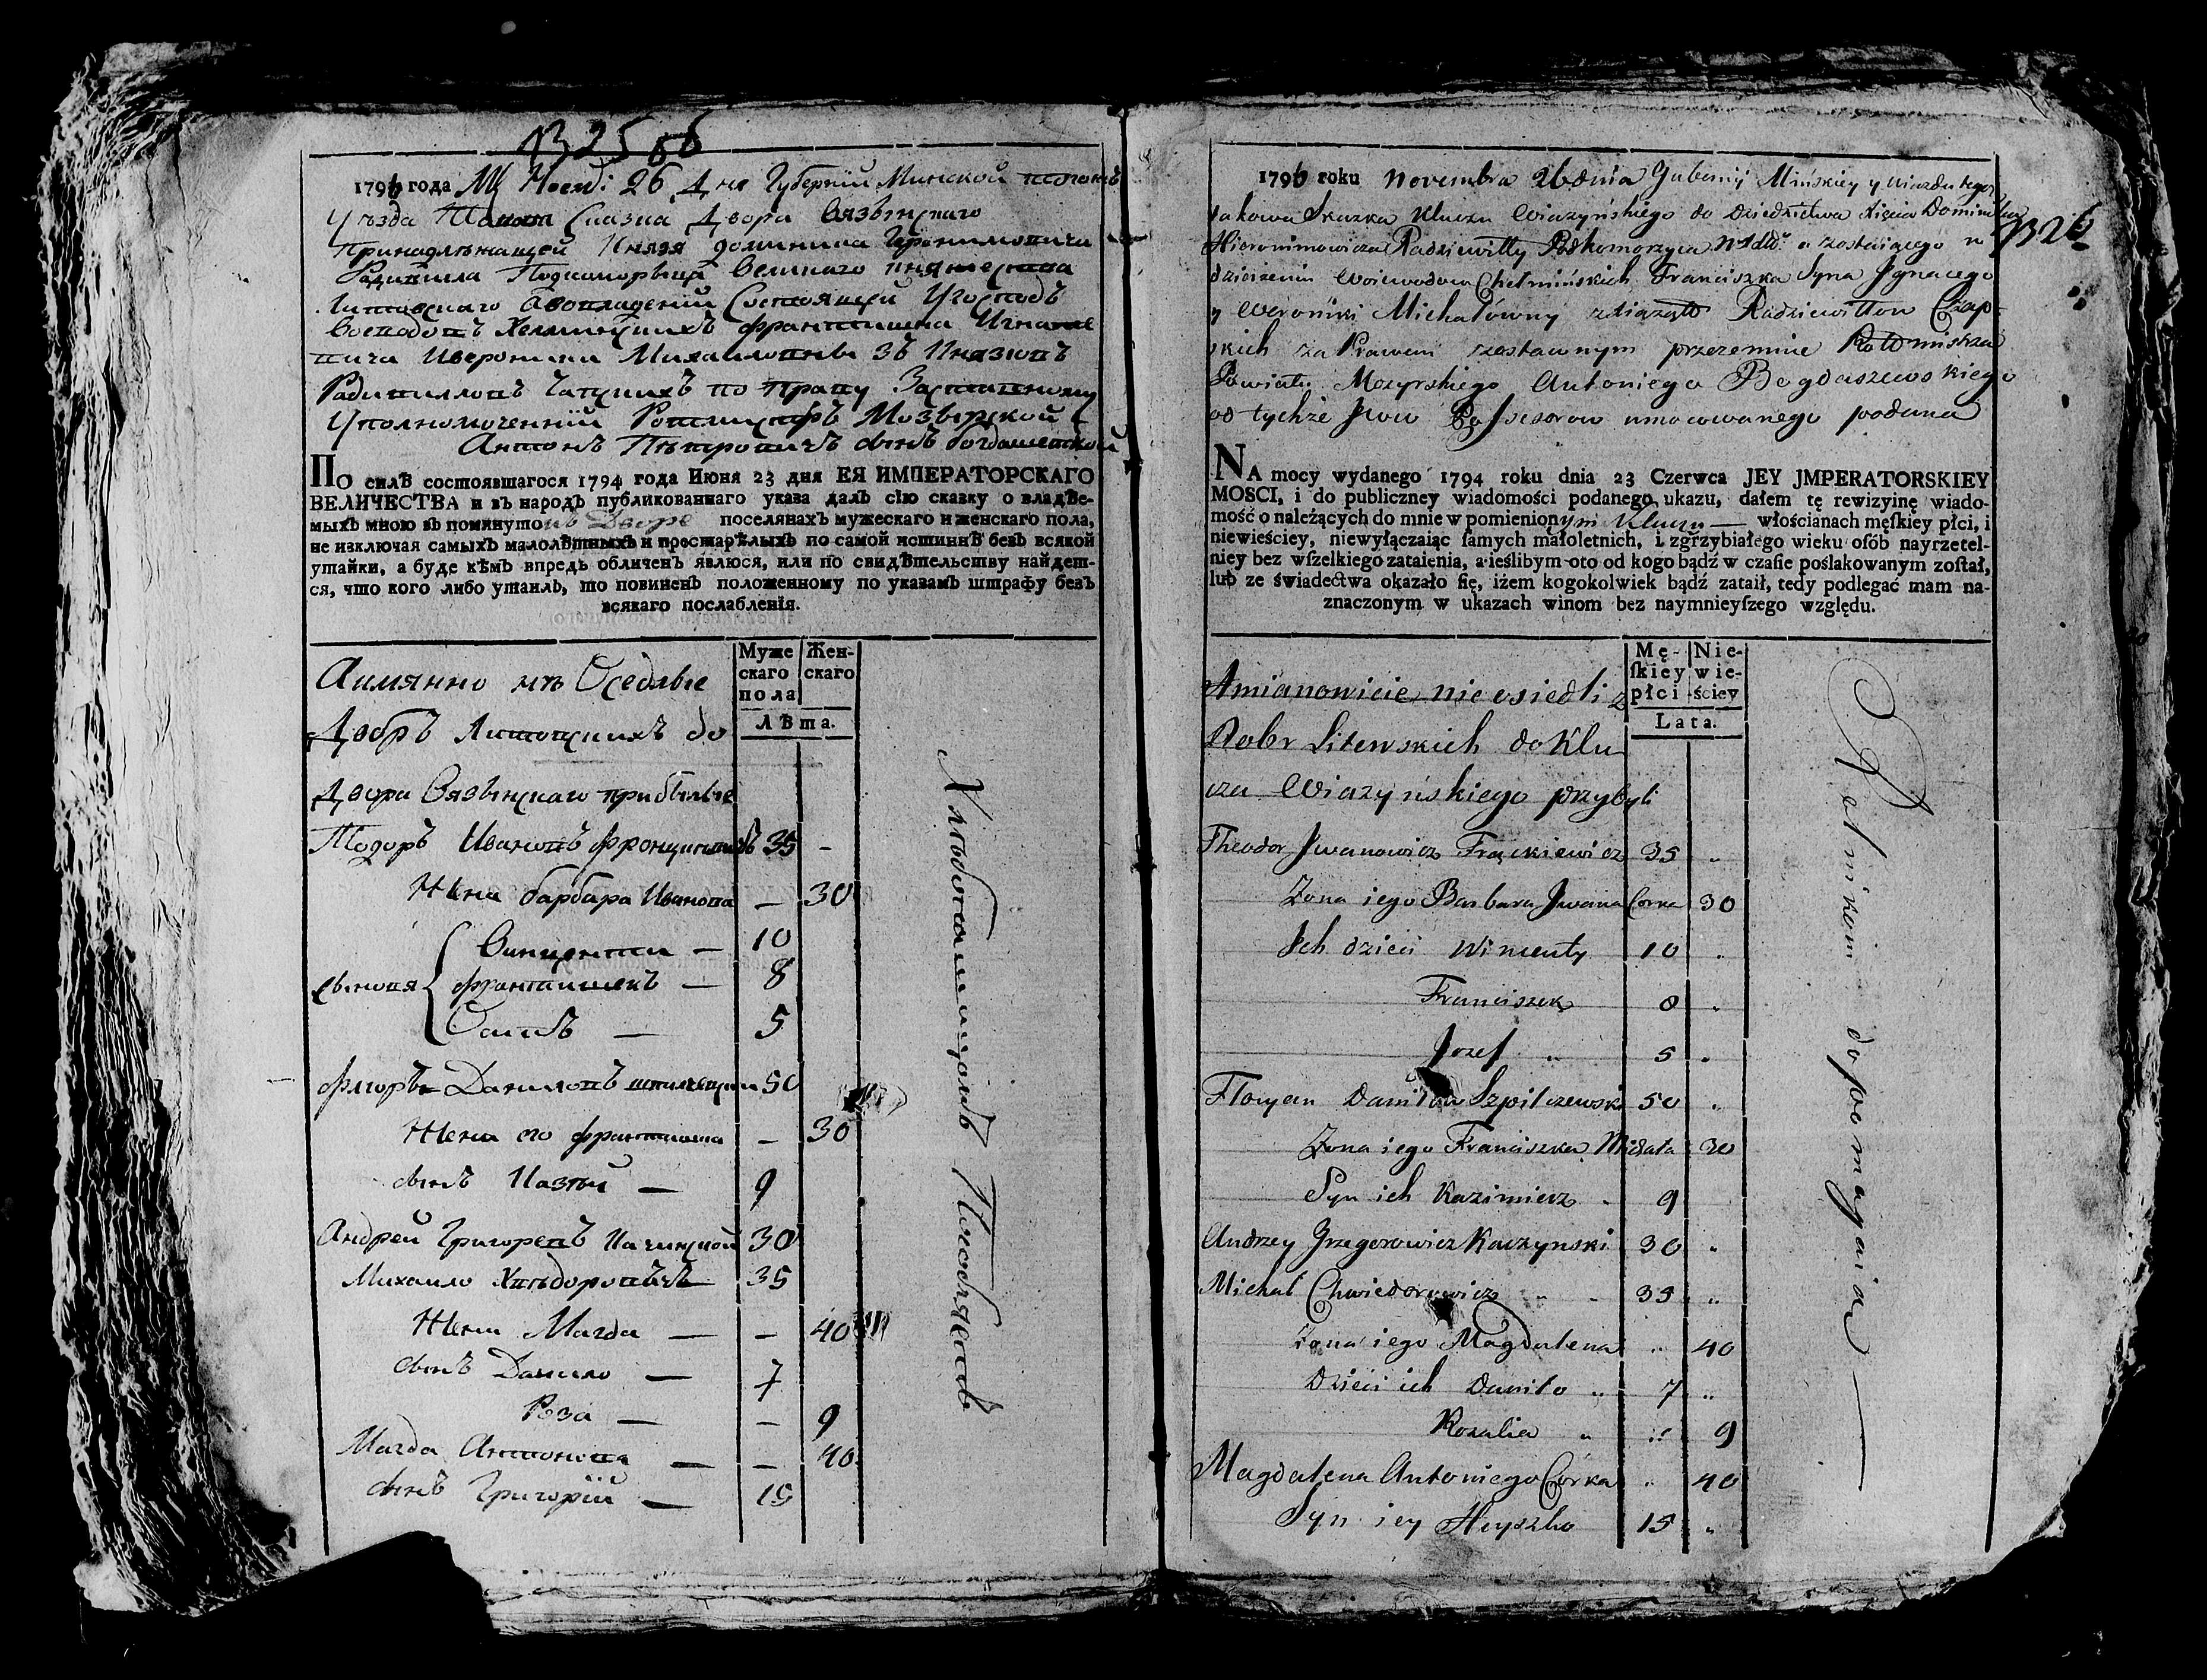 1325 66
1796 года Мц Ноемві 26 Дня Губерніи Минской тогожъ
Уѣзда Сказка Двора Вязынскаго
Принадлѣжащей Князя Доминика Геронимовича
Радивила Подкоморыца Великаго княжества
Литовскаго авовладеніи Состоящей У Господъ
Воеводовъ Хелминскихъ Францишка Игнаце
вича Иверонии Михаиловны зъ Князювъ
Радивилловъ Чапскихъ по праву Заставному
Уполномоченній Ротмистръ Мозырской
Антонъ Пѣтровичъ сынъ Богдашевской
По силѣ состоявшагося 1794 года Июня 23 дня ЕЯ ИМПЕРАТОРСКАГО
ВЕЛИЧЕСТВА и въ народъ публикованнаго указа далъ сїю сказку о владѣе-
мыхъ мною въ помянутомъ Дворе поселянахъ мужескаго и женскаго пола,
не изключая самыхъ малолѣтныхъ и престарѣлыхъ по самой истиннѣ безъ всякой
утайки, а буде кѣмъ впредь обличенъ явлюся, или по свидѣтельству найдет-
ся, что кого либо утаилъ, то повиненъ положенному по указамъ штрафу безъ
всякаго послабленїя.
Муже скаго пола Жен- скаго
Лѣта.
Аимянно нѣ Оседлые
Добръ Литовскихъ do
Двора Вязынскаго прибылые
Тодоръ Ивановъ Фронцкевичъ 35 -
Жена барбара Иванова — 30
сыновя Винценти — 10
Францишекъ — 8
Осипъ — 5
Флоръ Даниловъ шпилчевски 50
Жена его францишка — 30
сынъ Казми — 9
Андрей Григоревъ Качинской 30
Михаило Хвѣдоровичъ 35
Жена Магда — — 40
сынъ Данило — 7
Роза — — 9
Магда Антонова — — 40
сынъ Григорій — 15
Хлѣбопашцомъ Пособляетъ
1796 roku Novembra 26 dnia Gubernij Minskiey y Uiazdu tegoż
takowa Skazka Kluczu Wiazyńskiego do Dziedzictwa Xięcia Dominika
Hieronimowicza Radziwiłły Podkomorzyca W Xdtt° a zostaiącego w
dzierżeniu Woiewodow Chełmińskich Franciszka Syna Jgnacego
y Weroniki Michałówny z Xiążąt Radziwiłłow Czap-
skich za Prawem zastawnym przezemnie Rotmistrza
Powiatu Mozyrskiego Antoniego Bogdaszewskiego
od tychże Jww Possesorow umocowanego podana
1326
NA mocy wydanego 1794 roku dnia 23 Czerwca JEY JMPERATORSKIEY
MOSCI, i do publiczney wiadomości podanego ukazu, dałem tę rewizyinę wiado-
mość o należących do mnie w pomienionym Kluczu — włościanach męſkiey płci, i
niewieściey, niewyłączaiąc ſamych małoletnich, i zgrzybiałego wieku oſób nayrzetel-
niey bez wſzelkiego zataienia, a ieślibym oto od kogo bądź w czaſie poślakowanym zoſtał,
lub ze świadectwa okazało ſię, iżem kogokolwiek bądź zataił, tedy podlegać mam na-
znaczonym w ukazach winom bez naymnieyſzego względu.
Mę- ſkiey płci Nie- wie- ściey
Lata.
Amianowicie nie osiedli z
Dobr Litewskich do Klu
cza Wiazyńskiego przybyli
Theodor Jwanowicz Frąckiewicz 35 "
Zona iego Barbara Jwana Corka 30
Jch dzieci Wincenty 10 "
Franciszek 8 "
Jozef " 5 "
Floryan Daniłow Szpilczewski 50 "
Zona iego Franciszka 30
Syn ich Kazimierz 9
Andrzey Grzegorowicz Kaczynski 30 "
Michał Chwiedorowicz " 35 "
Zona iego Magdalena " 40
Dzieci ich Daniło " 7 "
Rozalia " " 9
Magdalena Antoniego Corka " 40
Syn iey Hryszko 15 "
Rolnikom dopomagaia —